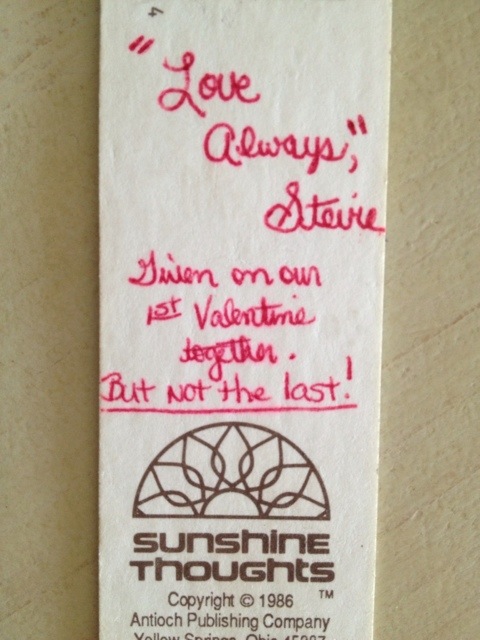 4
"Love
Always,"
Stevie
Given on our
1st Valentine
together.
But Not the last!
SUNSHINE
THOUGHTS TM
Copyright © 1986
Antioch Publishing Company
Yellow Springs, Ohio 45387